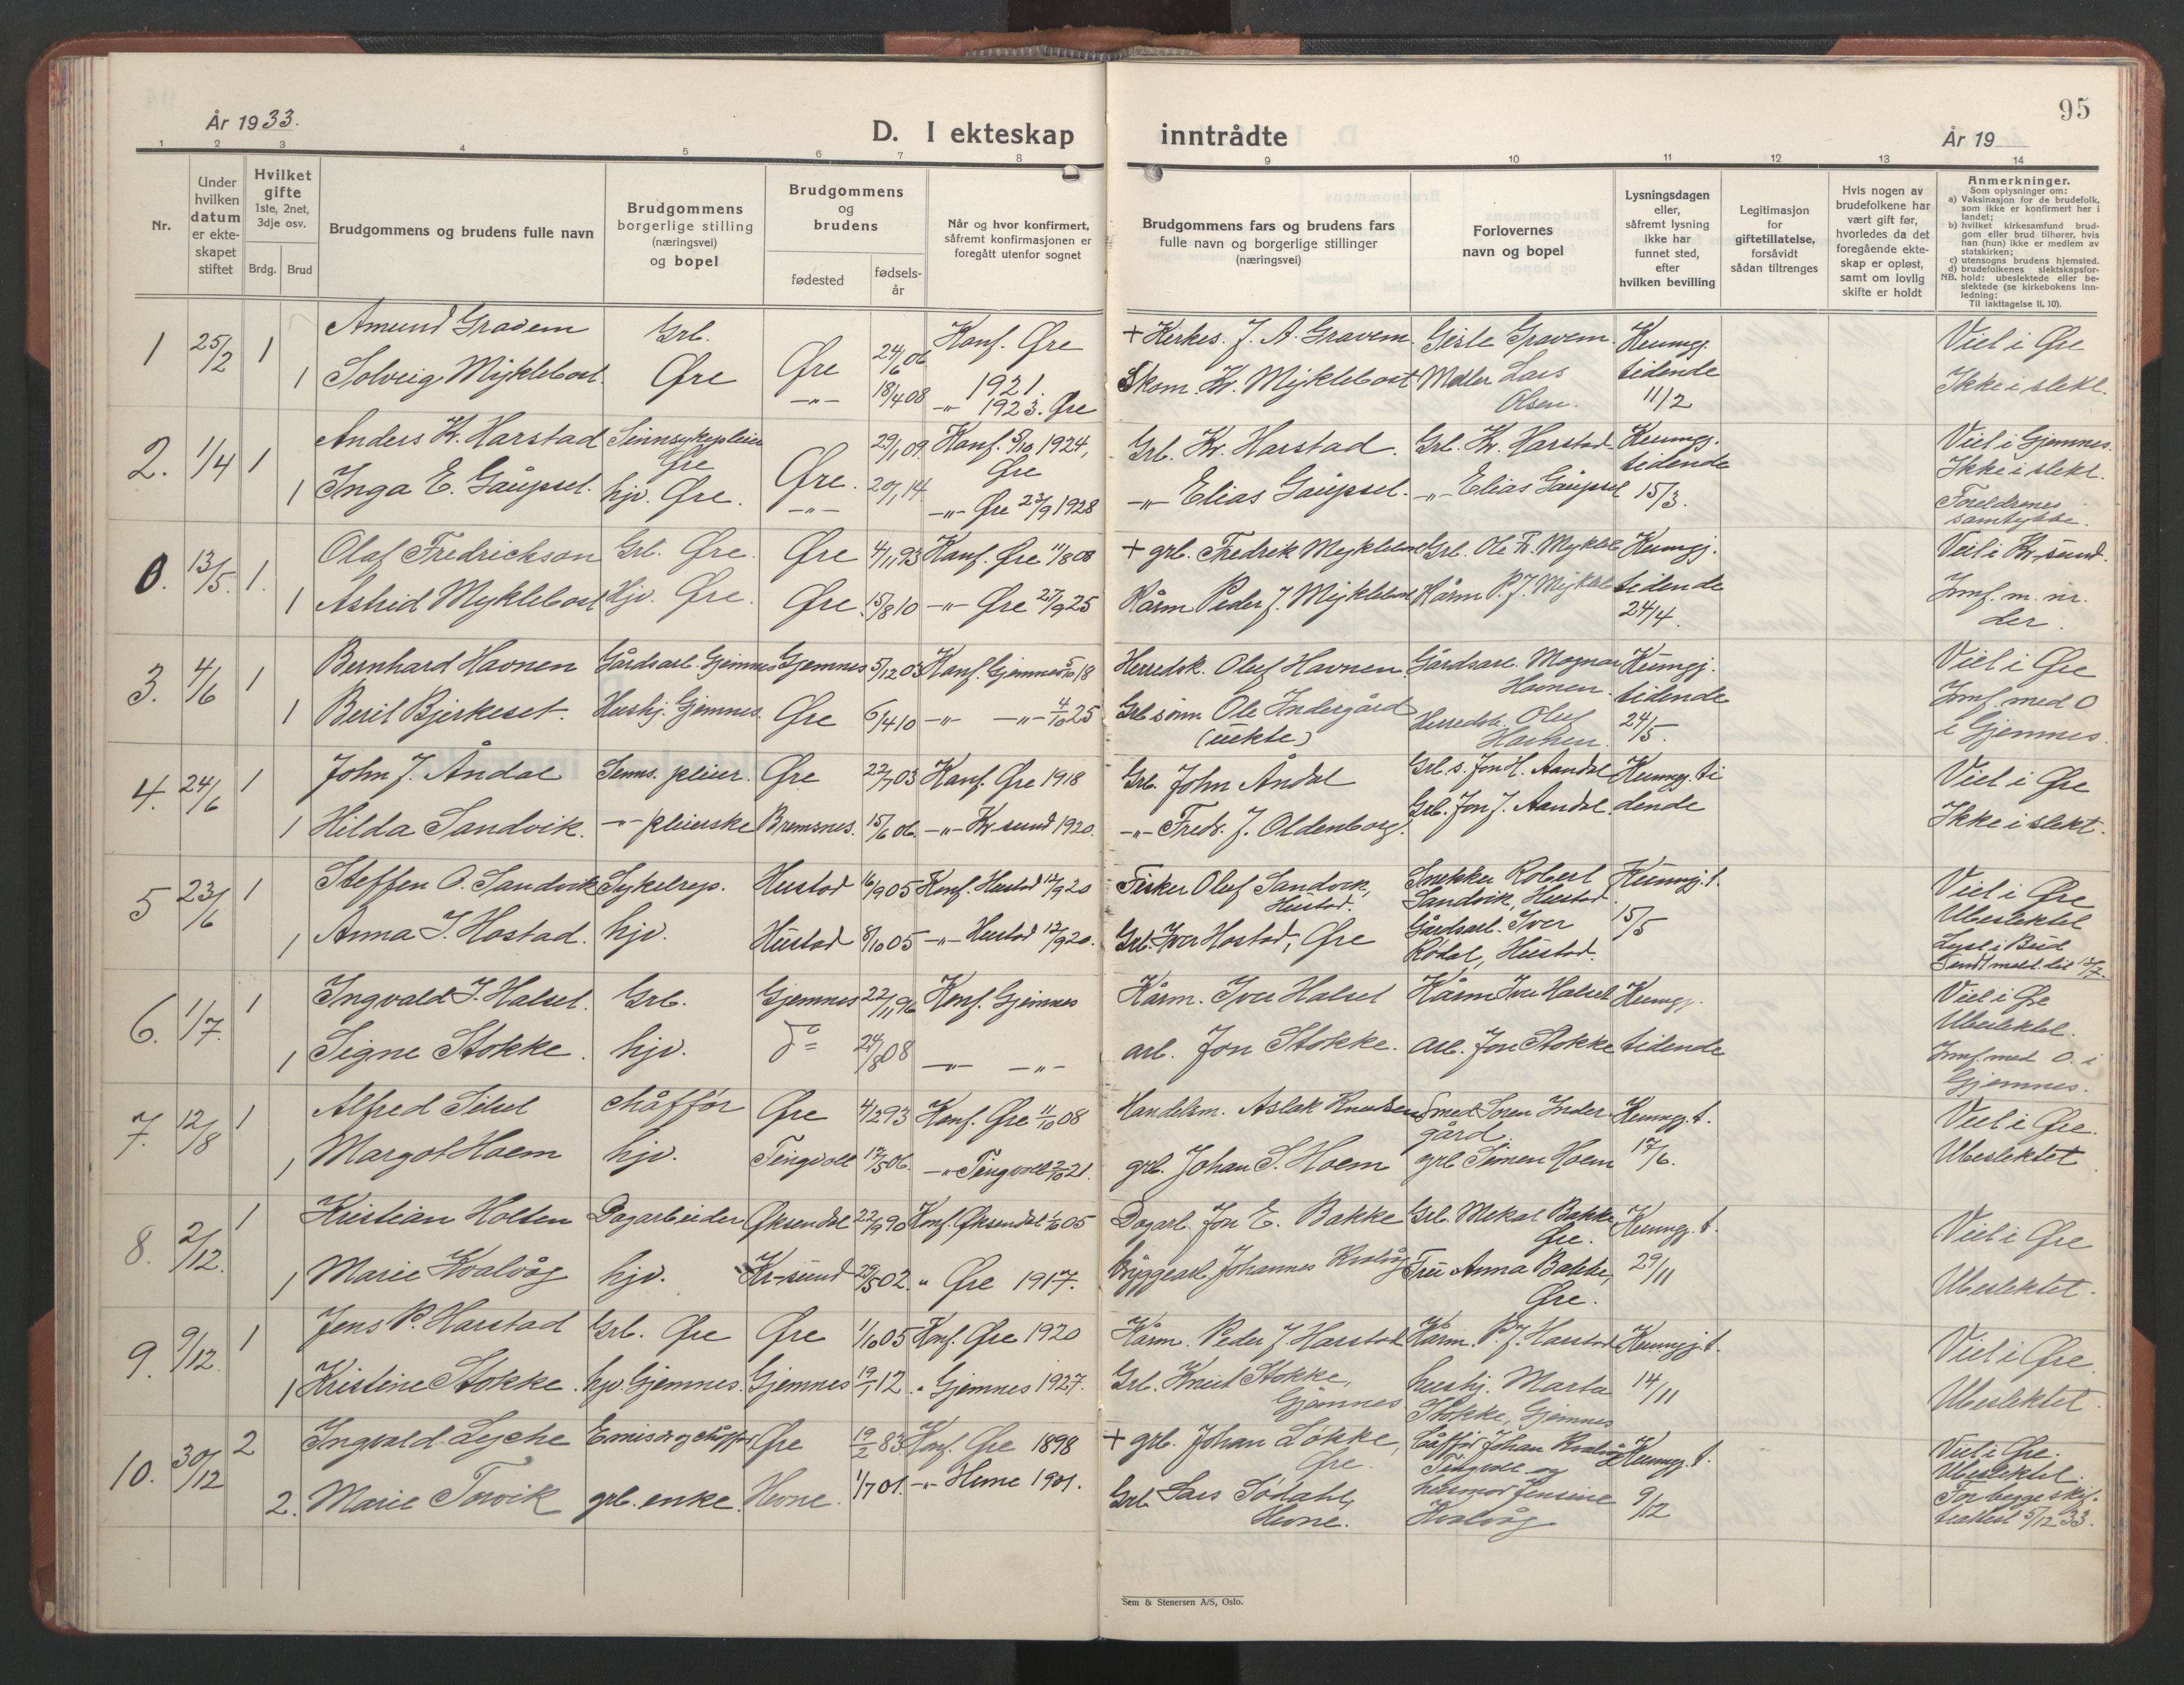 År 1933.
D. I ekteskap inntrådte
95
År 19
1 2 3 4 5 6 7 8 9 10 11 12 13 14
Nr.
Under hvilken datum er ekte-skapet stiftet
Hvilket gifte 1ste, 2net, 3dje osv.
Brdg. Brud
Brudgommens og brudens fulle navn
Brudgommens borgerlige stilling (næringsvei) og bopel
Brudgommens og brudens
fødested
fødsels-år
Når og hvor konfirmert, såfremt konfirmasjonen er foregått utenfor sognet
Brudgommens fars og brudens fars fulle navn og borgerlige stillinger (næringsvei)
Forlovernes navn og bopel
Lysningsdagen eller, såfremt lysning ikke har funnet sted, efter hvilken bevilling
Legitimasjon for giftetillatelse, forsåvidt sådan tiltrenges
Hvis nogen av brudefolkene har vært gift før, hvorledes da det foregående ekte-skap er opløst, samt om lovlig skifte er holdt
Anmerkninger.
Som oplysninger om:
a) Vaksinasjon for de brudefolk, som ikke er konfirmert her i landet;
b) hvilket kirkesamfund brud-gom eller brud tilhører, hvis han (hun) ikke er medlem av statskirken;
c) utensogns brudens hjemsted.
d) brudefolkenes slektskapsfor-hold: ubeslektede eller be-slektede (se kirkebokens inn-ledning:
NB.
Til iakttagelse II. 10).
1 25/2 1 Amund Gravem Grb. Øre 24/6 06 Konf. Øre 1921. + Kirkes. J. A. Gravem Gisle Gravem Kunngj. Viel i Øre
1 Solveig Myklebost. Øre -"- 18/4 08 -"- 1923. Øre Skom. Kr. Myklebost Møller Lars Olsen. tidende 11/2 Ikke i slekt.
2. 1/4 1 Anders K. Harstad Sinnsykepleier Øre Øre. 29/1 09. Konf. 5/10 1924, Øre Grb. Kr. Harstad. Grb. Kr. Harstad Kunngj. Viel i Gjemnes. Ikke i slekt.
1 Inga E. Gaüpset. hjv. Øre. -"- 20/1 14. -"- Øre 23/9 1928 -"- Elias Gaüpset. -"- Elias Gaüpset tidende 15/3. Foreldrenes samtykke.
0. 13/5. 1. Olaf Fredrickson Grb. Øre. Øre 4/11 93 Konf. Øre 11/8 08 + grb. Fredrik Myklebost Grb. Ole Fr. Myklebost Kunngj. Veil i Kr. sund.
1 Astrid Myklebost Hjv. Øre. Øre. 15/8 10 -"- Øre 27/9 25 Kårm Peder J. Myklebost Kårm P. J. Myklebost tidende 24/4. Innf. m. nr. der.
3. 4/6 1 Bernhard Havnen Gårdsarb. Gjemnes Gjemnes 5/12 03 Konf. Gjemnes 5/10 18 Herredsk. Oluf Havnen Gårdsarb. Magnar Havnen. Kunngj. Viel i Øre
1 Beril Bjerkeset. Hushj. Gjemnes. Øre 6/4 10 -"- -"- 4/10 25 Grb sønn Ole Indergård (uekte) Herredsk. Oluf Havnen. tidende 24/5. Innf. med 0 i Gjemnes.
4. 24/6 1 John J. Åndal Sinns. pleier. Øre 22/7 03 Konf. Øre 1918 Grb. John Åndal Grb. s. Jon H. Aandal Kunngj. ti Viel i Øre
1 Hilda Sandvik. -"- pleierske Bremsnes. 15/6 06. -"- Kr sund 1920. -"- Fredr. J. Oldenborg. Grb. Jon J. Aandal dende Ikke i slekt.
5 23/6 1 Steffen O. Sandvik Sykelrep. Hustad 16/9 05 Konf. Hustad 12/9 20 Fisker Oluf Sandvik, Hustad. Snekker Robert Sandvik, Hustad. Kunngj. t. Viel i Øre Ubeslektet
1 Anna I. Hostad. hjv. Hustad 8/10 05 -"- Hustad 12/9 20. Grb. Iver Hostad, Øre Gårdsarb. Iver Rødal, Hustad. 15/5 Lyst i Bud Sendt meld. dit 12/7.
6. 1/7. 1 Ingvald I. Halset. Grb. Gjemnes 22/11 96 Konf. Gjemnes Kårm. Iver Halset Kårm Iver Halset Kunngj. Viel i Øre Ubeslektet.
1 Signe Stokke. hjv. do 24/8 08 -"- -"- arb. Jon Stokke. Arb. Jon Stokke tidende Innf. med 0. i Gjemnes.
7. 12/8 1 Alfred Silset chåffør Øre 4/2 93 Konf. Øre 11/10 08 Handelsm. Aslak Knutsen Smed Søren Indergård. Kunngj. t. Viel i Øre.
1 Margot Hoem hjv. Tingvoll 17/5 06. -"- Tingvoll 2/10 21. grb. Johan S. Hoem grb Simen Hoem 17/6. Ubeslektet
8. 2/12. 1 Kristian Holten Dagarbeider Øksendal 22/9 90 Konf. Øksendal 1/10 05 Dagarb. Jon E. Bakke Grb. Mikal Bakke Øre. Kunngj. t. Viel i Øre
1 Marie Kvalvåg hjv. Kr-sund 29/5 02. " Øre 1917. Bryggearb. Johannes Kvalvåg Frü Anna Bakke, Øre. 29/11 Ubeslektet.
9. 9/12. 1 Jens P. Harstad Grb. Øre Øre 1/10 05 Konf. Øre 1920 Kårm. Peder J. Harstad Kårm. P. J. Harstad Kunngj. t. Viel i Øre.
1 Kristine Stokke. hjv Gjemnes. Gjemnes 19/1 12 " Gjemnes 1927. Grb. Knut Stokke, Gjemnes hushj. Marta Stokke, Gjemnes 14/11 Ubeslektet.
10. 30/12 2 Ingvald Lyche Emisær og chåffør Øre 19/2 83 Konf. Øre 1898 + grb. Johan Løkke, Øre. Cåffør Johan Kvalvåg Tingvoll og Kunngj. t. Viel i Øre. Ubeslektet.
2. Marie Torvik grb. enke. Hevne. 1/7 01. -"- Hevne 1901. Grb Lars Sødahl, Hevne. husmor Jensine Kvalvåg 9/12 For begge skif. teattest 5/12 33.
Sem & Stenersen A/S, Oslo.